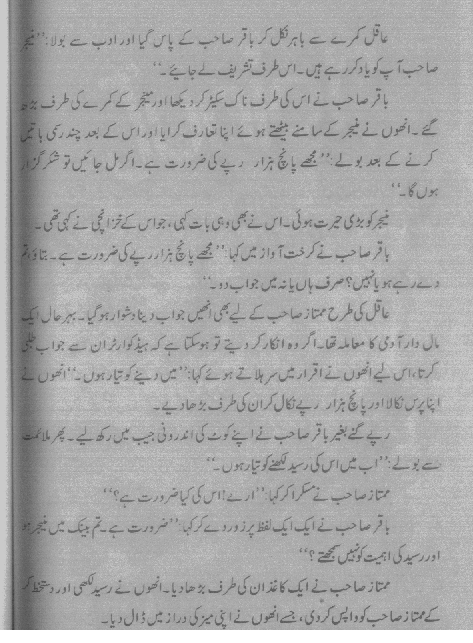 عاقل کمرے سے باہر نکل کر باقر صاحب کے پاس گیا اور ادب سے بولا: ’’منیجر
صاحب آپ کو یاد کر رہے ہیں۔ اس طرف تشریف لے جائیے۔‘‘
باقر صاحب نے اس کی طرف ناک سکیڑ کر دیکھا اور منیجر کے کمرے کی طرف بڑھ
گئے۔ انھوں نے منیجر کے سامنے بیٹھتے ہوئے اپنا تعارف کرایا اور اس کے بعد چند رسمی باتیں
کرنے کے بعد بولے: ’’مجھے پانچ ہزار رپے کی ضرورت ہے۔ اگر مل جائیں تو شکر گزار
ہوں گا۔‘‘
منیجر کو بڑی حیرت ہوئی۔ اس نے بھی وہی بات کہی، جو اس کے خزانچی نے کہی تھی۔
باقر صاحب نے کرخت آواز میں کہا: ’’مجھے پانچ ہزار رپے کی ضرورت ہے۔ بتاؤ، تم
دے رہے ہو یا نہیں؟ صرف ہاں یا نہ میں جواب دو۔‘‘
عاقل کی طرح ممتاز صاحب کے لیے بھی انھیں جواب دینا دشوار ہو گیا۔ بہر حال ایک
مال دار آدمی کا معاملہ تھا۔ اگر وہ انکار کر دیتے تو ہو سکتا ہے کہ ہیڈ کوارٹر ان سے جواب طلبی
کرتا، اس لیے انھوں نے اقرار میں سر ہلاتے ہوئے کہا: ’’میں دینے کو تیار ہوں۔‘‘ انھوں نے
اپنا پرس نکالا اور پانچ ہزار رپے نکال کر ان کی طرف بڑھا دیے۔
رپے گنے بغیر باقر صاحب نے اپنے کوٹ کی اندرونی جیب میں رکھ لیے۔ پھر ملائمت
سے بولے: ’’اب میں اس کی رسید لکھنے کو تیار ہوں۔‘‘
ممتاز صاحب نے مسکرا کر کہا: ’’ارے! اس کی کیا ضرورت ہے؟‘‘
باقر صاحب نے ایک ایک لفظ پر زور دے کر کہا: ’’ضرورت ہے۔ تم بینک میں منیجر ہو
اور رسید کی اہمیت کو نہیں سمجھتے؟‘‘
ممتاز صاحب نے ایک کاغذ ان کی طرف بڑھا دیا۔ انھوں نے رسید لکھی اور دستخط کر
کے ممتاز صاحب کو واپس کر دی، جسے انھوں نے اپنی میز کی دراز میں ڈال دیا۔